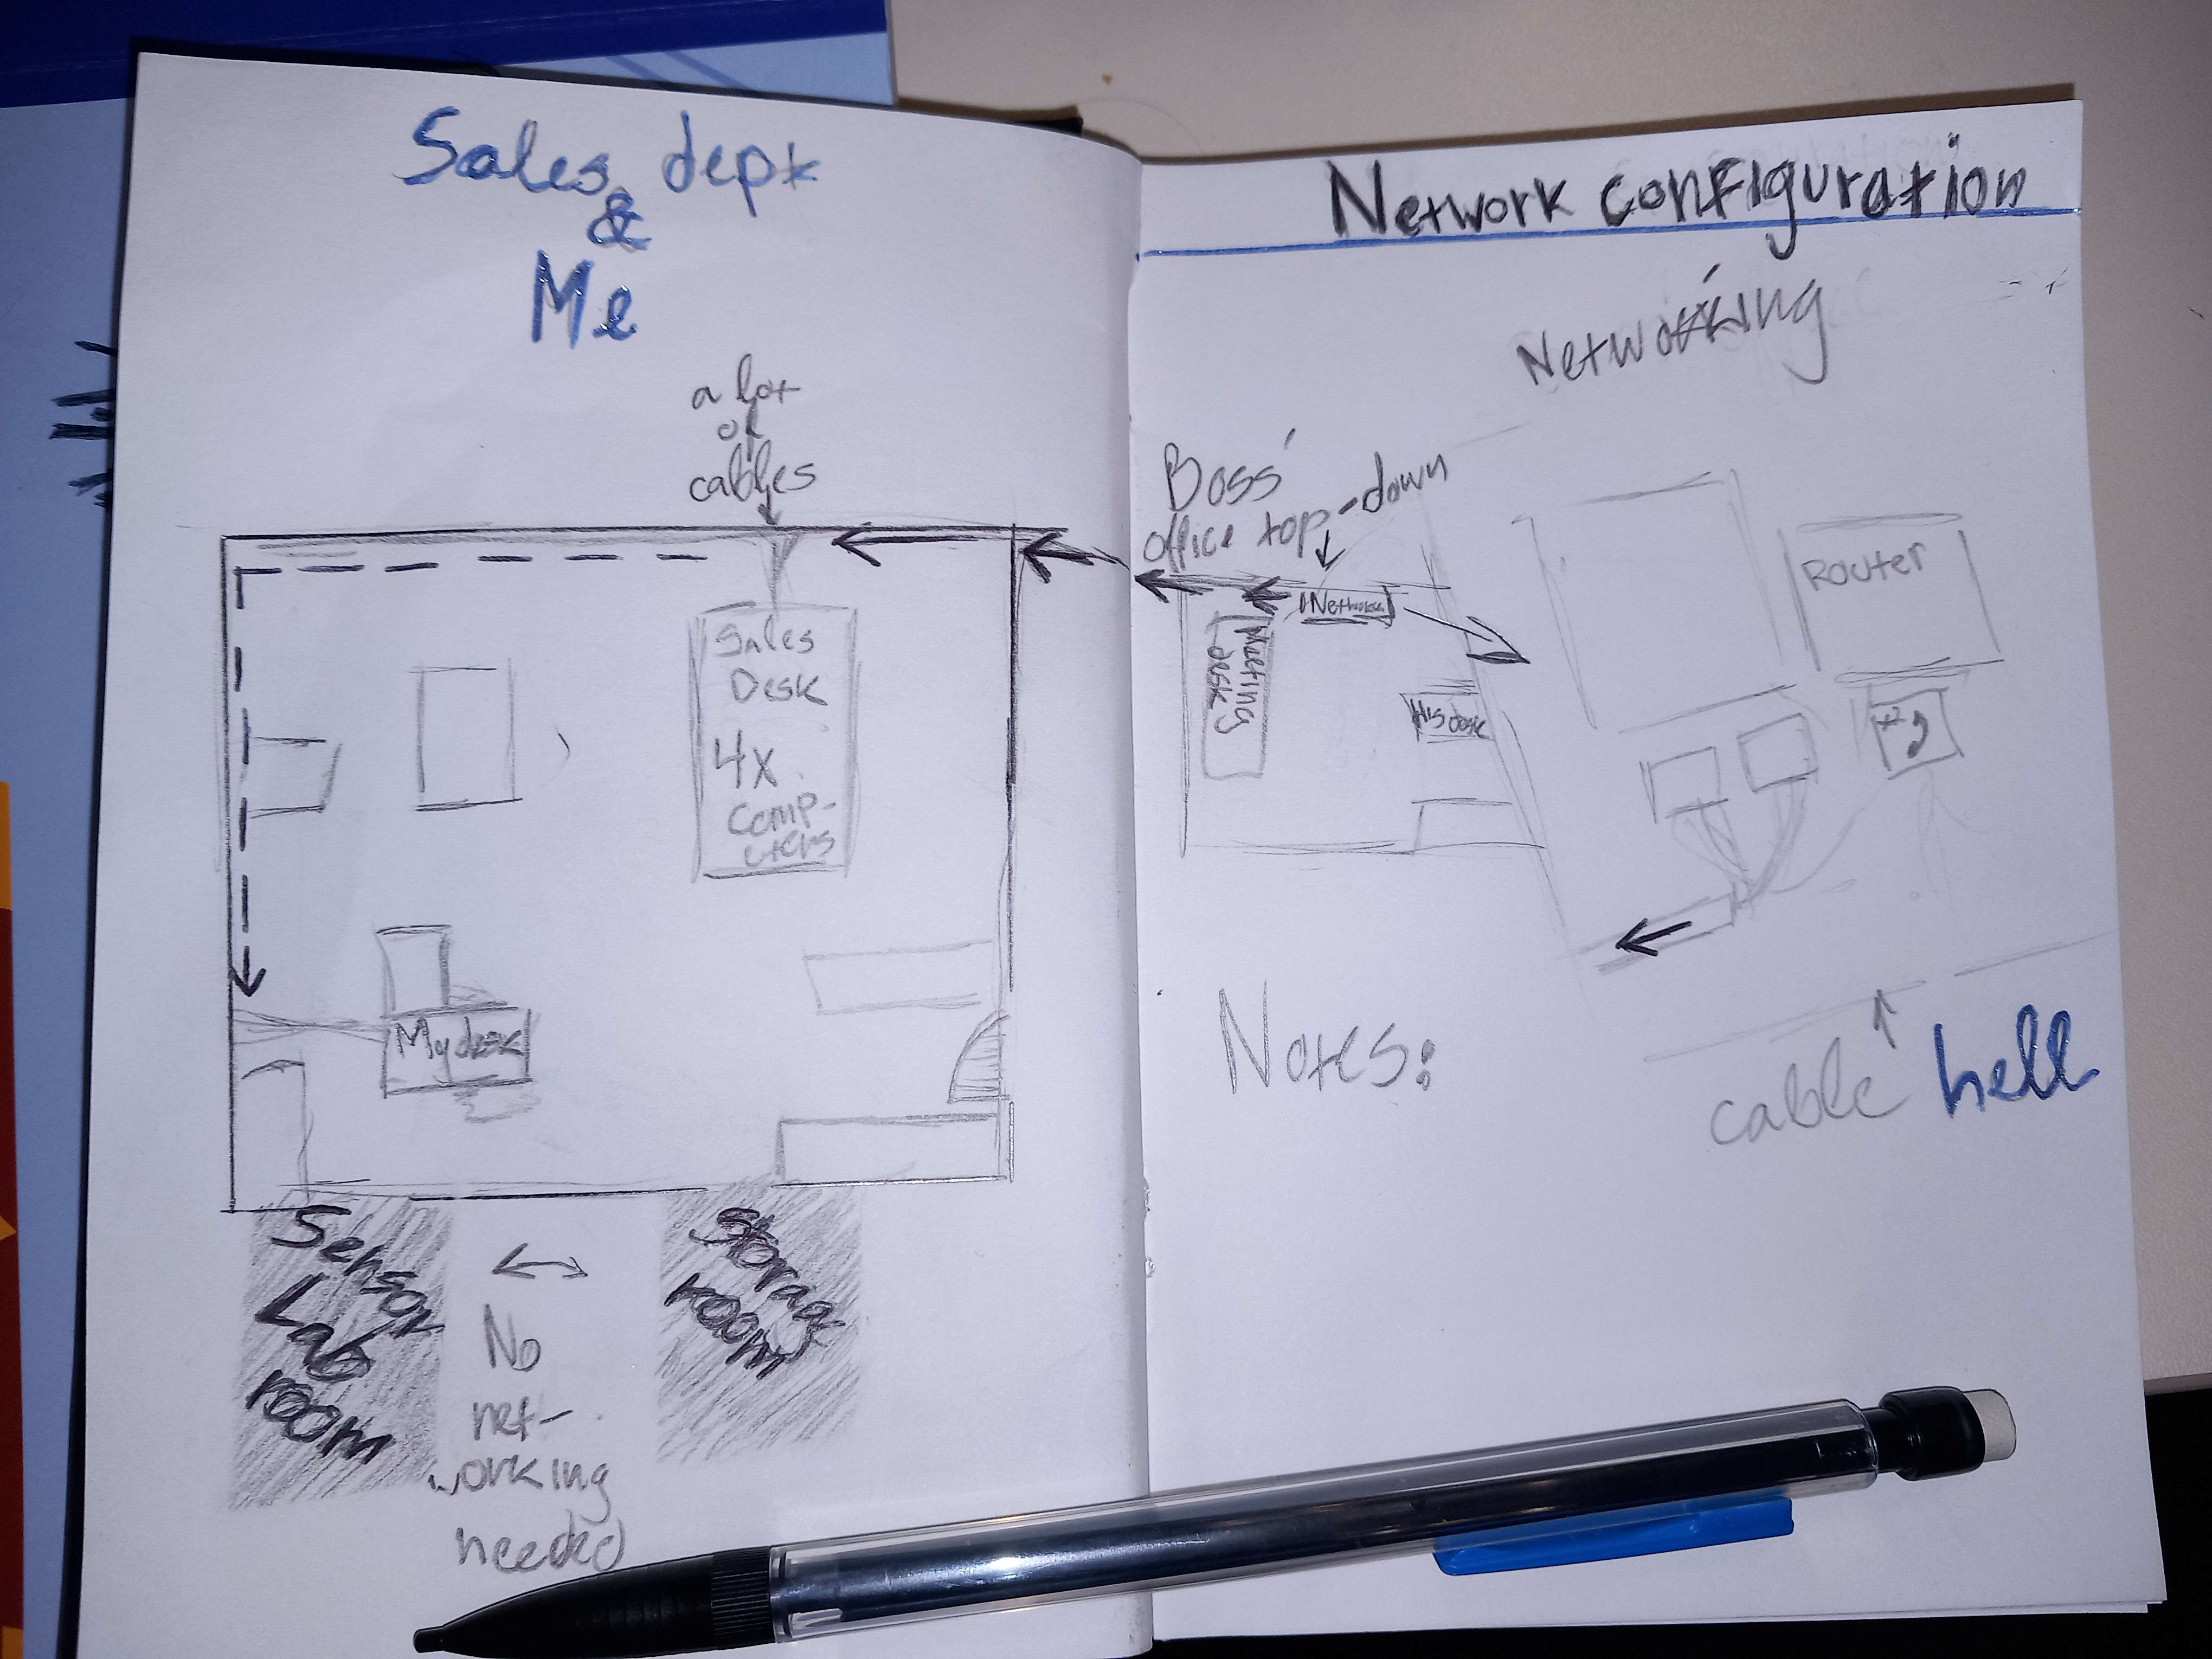 Sales dept
&
Me
a lot
of
cables
Sales
Desk
4x
Comp-
uters
My desk
Sensor
Lab
room
No
net-
working
needed
Storage
room
Network configuration
Networking
Boss'
office top-down
Network
Meeting
desk
His desk
Router
Notes:
cable hell